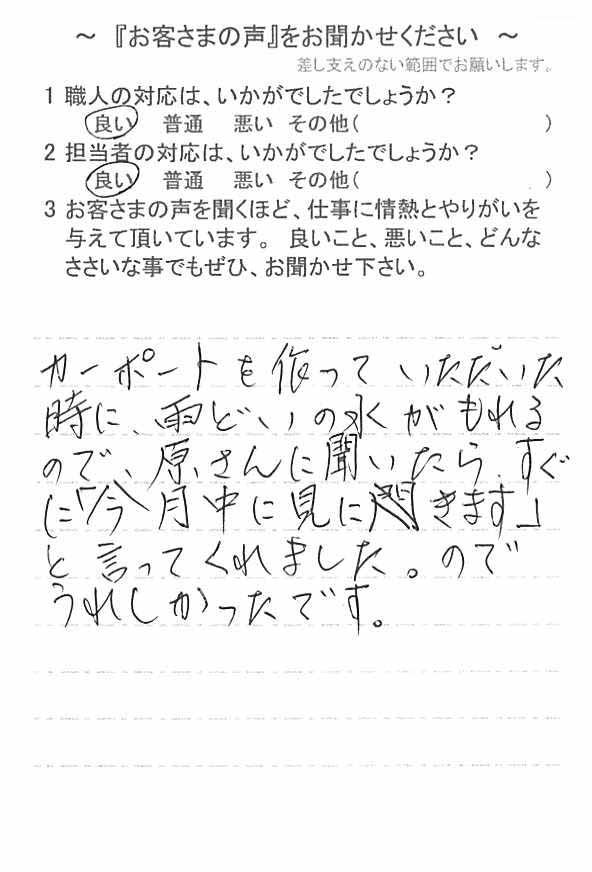 ～ 『お客さまの声』をお聞かせください ～
差し支えのない範囲でお願いします。
1 職人の対応は、いかがでしたでしょうか？
良い 普通 悪い その他( )
2 担当者の対応は、いかがでしたでしょうか？
良い 普通 悪い その他( )
3 お客さまの声を聞くほど、仕事に情熱とやりがいを
与えて頂いています。 良いこと、悪いこと、どんな
ささいな事でもぜひ、お聞かせ下さい。
カーポートを作っていただいた
時に、雨どいの水がもれる
ので、原さんに聞いたら、すぐ
に「今月中に見に きます」
と言ってくれました。ので
うれしかったです。